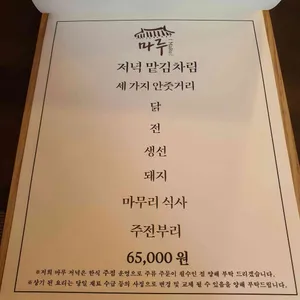 마루
저녁 맡김차림
세 가지 안줏거리
닭
전
생선
돼지
마무리 식사
주전부리
65,000 원
※저희 마루 저녁은 한식 주점 운영으로 주류 주문이 필수인 점 양해 부탁 드리겠습니다.※
※상기 된 요리는 당일 재료 수급 등의 사정으로 변경 및 교체 될 수 있음을 양해 부탁드립니다.※